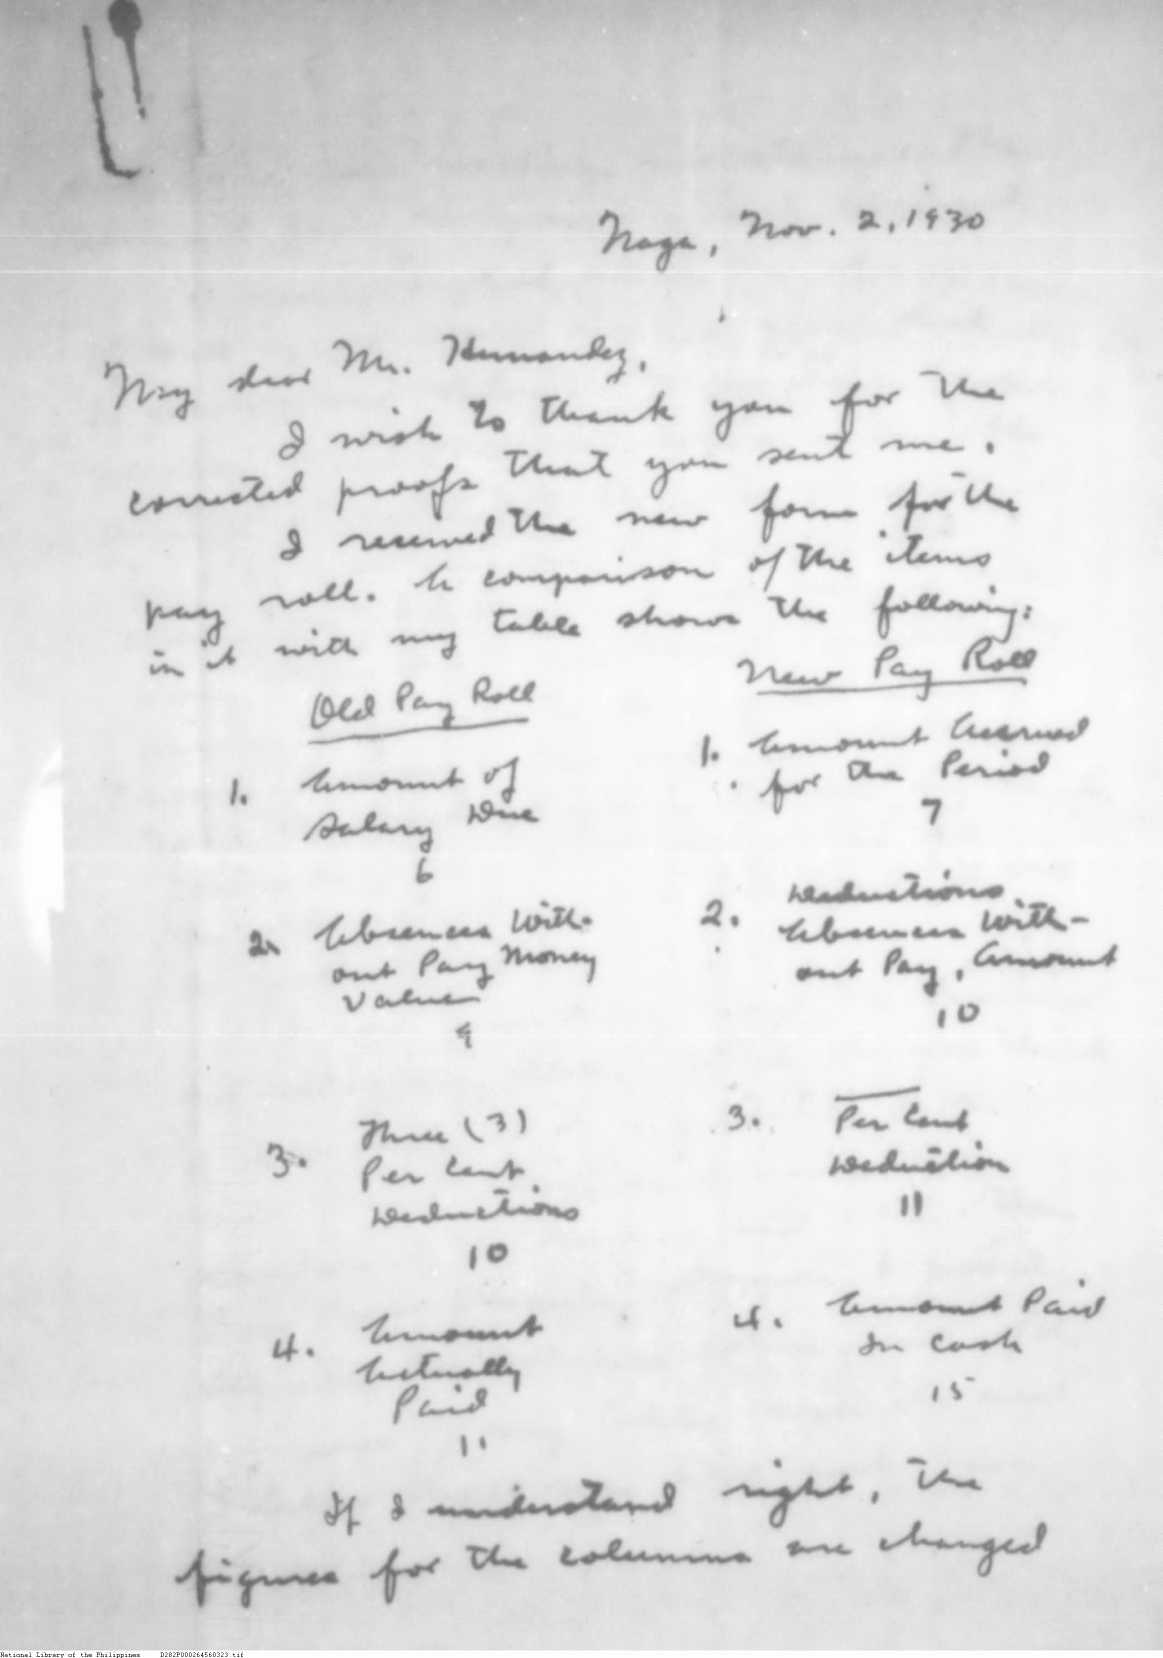 Naga, Nov. 2, 1930
My dear Mr. Hernandez,
I wish to thank you for the
corrected proofs that you sent me.
I received the new form for the
pay roll. A comparison of the items
in it with my table shows the following:
Old Pay Roll
New Pay Roll
1. Amount of
Salary Due
6
1. Amount Accrued
for the Period
7
2. Absences With-
out Pay Money
Value
9
2. Deductions
Absences With-
out Pay, Amount
10
3. Three (3)
Per Cent
Deductions
10
3. Per Cent
Deduction
11
4. Amount
Actually
Paid
11
4. Amount Paid
In Cash
15
If I understand right, the
figures for the columns are changed
National Library of the Philippines D282P000264560323.tif